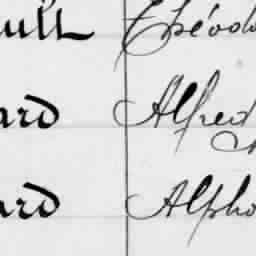 ull Théodo
ard Alfred
ard Alpho